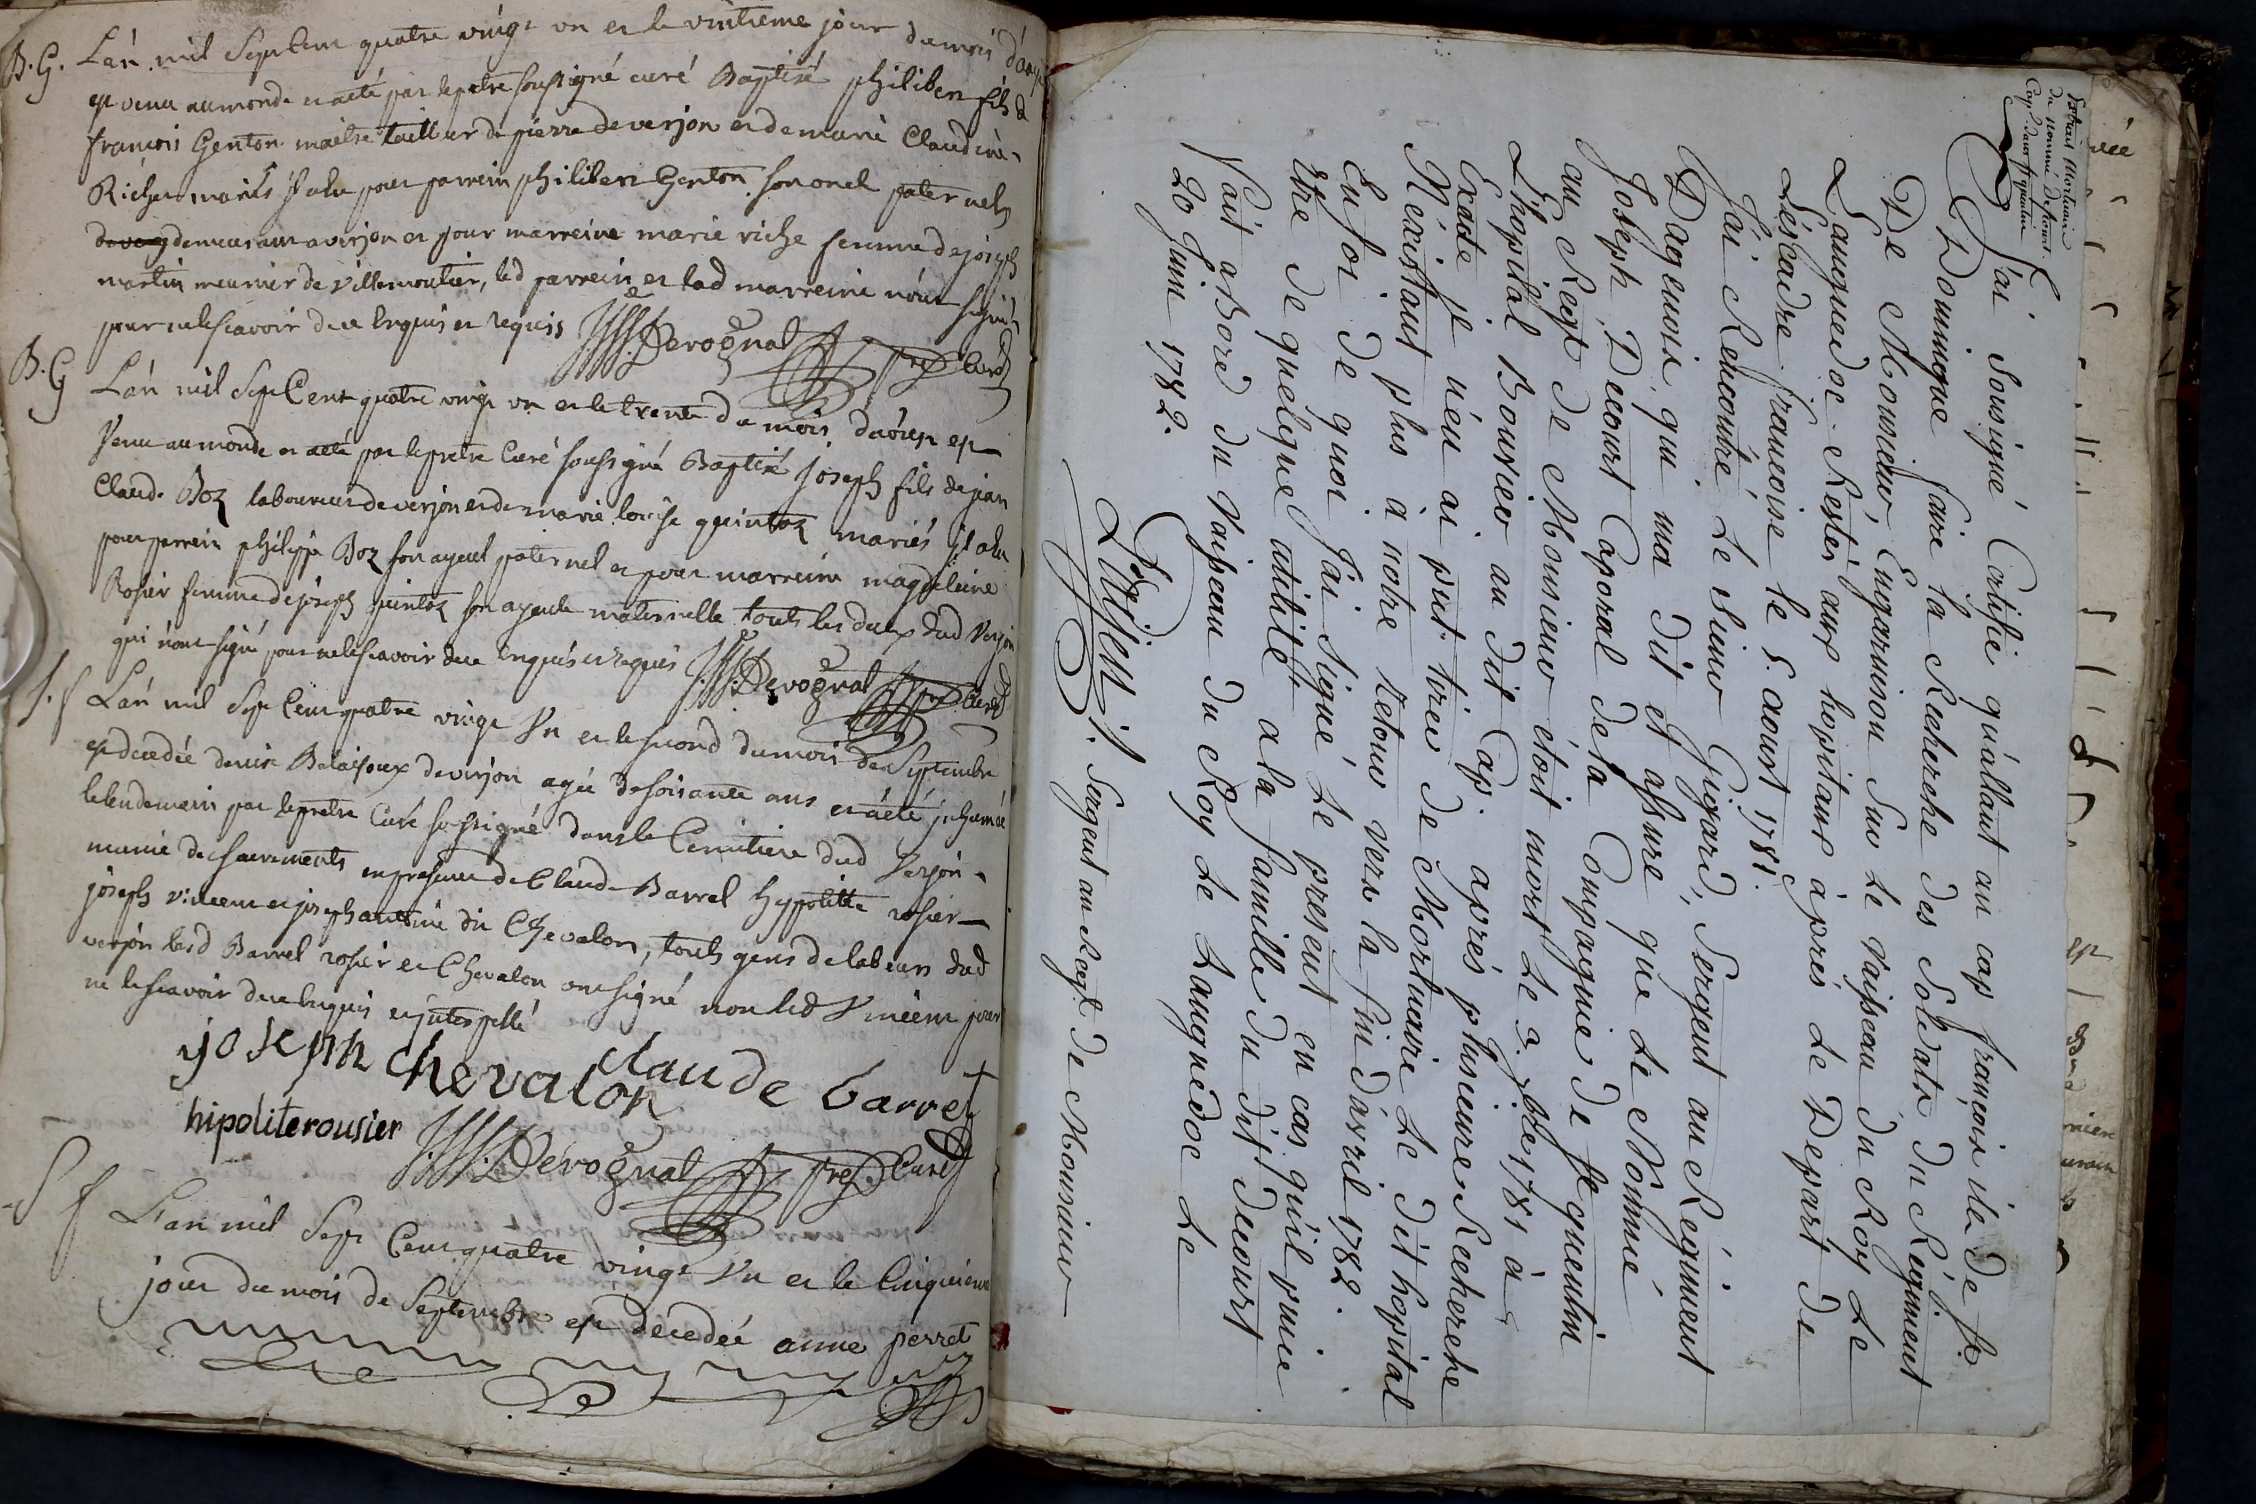 B. G. L'an mil Sept Cent quatre vingt un et le vintieme jour du mois d'aoust
est venu au monde et a eté par le pretre soussigné curé Baptisé philibert fils de
françois Genton maitre tailleur de pierre de verjon et de marie Claudine
Riche mariés il a hu pour parrein philibert Genton son oncl paternels
demeurant a verjon et pour marreine marie riche femme de joseph
martin meunier de villemoutier, led parrein et lad marreine n'ont signés
pour ne le scavoir de ce enquis et requis Devognat pretre Curé
B. G L'an mil Sept Cent quatre vingt un et le trente du mois d'aoust est
Venu au monde et a eté par le pretre Curé soussigné Baptisé joseph fils de jean
Claude Boz laboureur de verjon et de marie louise quintoz mariés il a hu
pour parrein philippe Boz son ayeul paternel et pour marreine magdeleine
Rosier femme de joseph quintoz son ayeule maternelle touts les deux dud Verjon
qui n'ont signé pour ne le scavoir de ce enquis et requis Devognat pretre Curé
S. f L'an mil Sept Cent quatre vingt Un et le second du mois de Septembre
est decedée denise Belaisoux de verjon agée de soisante ans et a eté inhumée
le lendemain par le pretre Curé soussigné dans le Cemitiere dud Verjon
munie des sacrements en presence de Claude Barrel hypolitte rosier
joseph vincent et joseph antoine dit Chevalon, touts gens de labeurs dud
verjon lesd Barrel rosier et Chevalon ont signé non led Vincent pour
ne le scavoir de ce enquis et interpellé
joseph chevalon claude barret
hipolite rousier Devognat pretre Curé
S f L'an mil Sept Cent quatre vingt Un et le Cinquieme
jour du mois de Septembre est decedée anne perret
Extrait Mortuaire
du nommé Decourt
Cap.l dans St quentin
J'ai Sousigné Certifie qu'allant au cap françois ile de St.
Domingue faire la Recherche des Soldats du Régiment
De Monsieur, Engarnison Sur Le Vaisseau du Roy Le
Languedoc Restés aux hopitaux après Le Depart de
L'éscadre françoise le 5. aoust 1781.
J'ai Rencontré Le Sieur Gigard, Sergent au Régiment
D'agenois, qui ma dit et assuré que Le Nommé
Joseph Decourt Caporal de la Compagnie de St quentin
au Regt de Monsieur étoit mort Le 3. 7bre 1781 à
L'hopital Boutier au dit Cap. après plusieurs Recherche
Exacte je n'en ai put tirer de Mortuaire Le dit hopital
N'existant plus à notre Retour vers la fin d'avril 1782.
En foi de quoi J'ai Signé Le present en cas qu'il puisse
Etre de quelque utilité a la famille du dit Decourt
Fait abord du Vaisseau du Roy Le Languedoc Le
20 Juin 1782.
Sergent au Regt de Monsieur